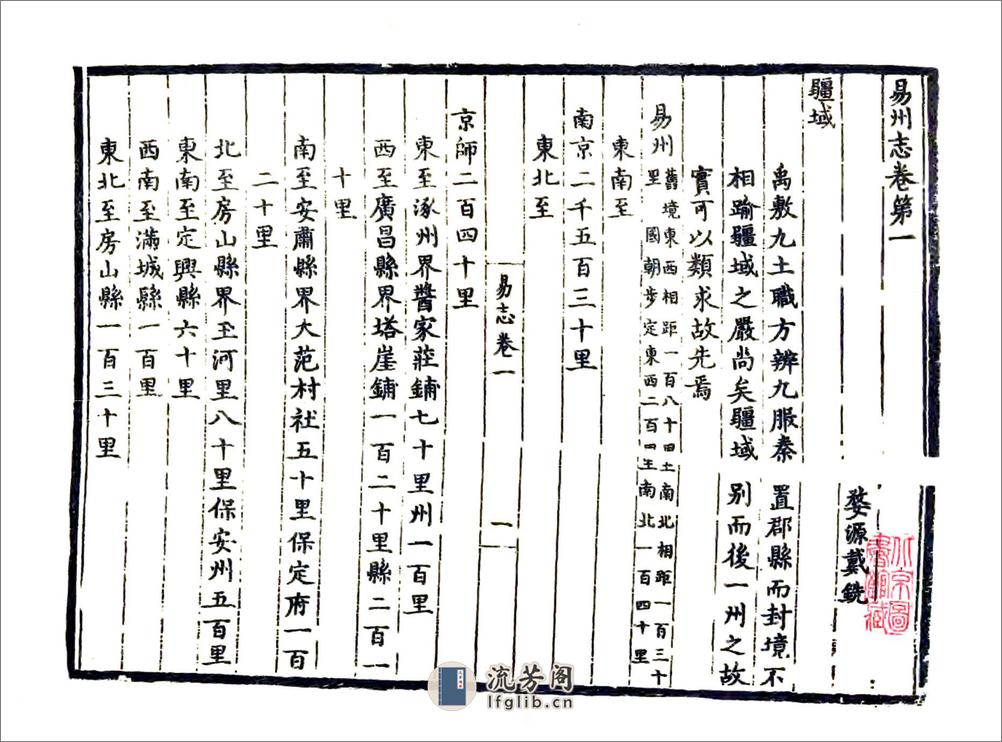 易州志卷第一
婺源戴銑
疆域
禹敷九土職方辨九服秦置郡縣而封境不
相踰疆域之嚴尚矣疆域別而後一州之故
實可以類求故先焉
易州舊境東西相距一百八十里南北相距一百三十
里國朝步定東西二百里南北一百四十里
東南至
南京二千五百三十里
東北至
易志卷一
一
京師二百四十里
東至涿州界醬家莊鋪七十里州一百里
西至廣昌縣界塔崖鋪一百二十里縣二百一
十里
南至安肅縣界大范村社五十里保定府一百
二十里
北至房山縣界玊河里八十里保安州五百里
東南至定興縣六十里
西南至滿城縣一百里
東北至房山縣一百三十里
北京圖
書館藏
流芳阁
lfglib.cn